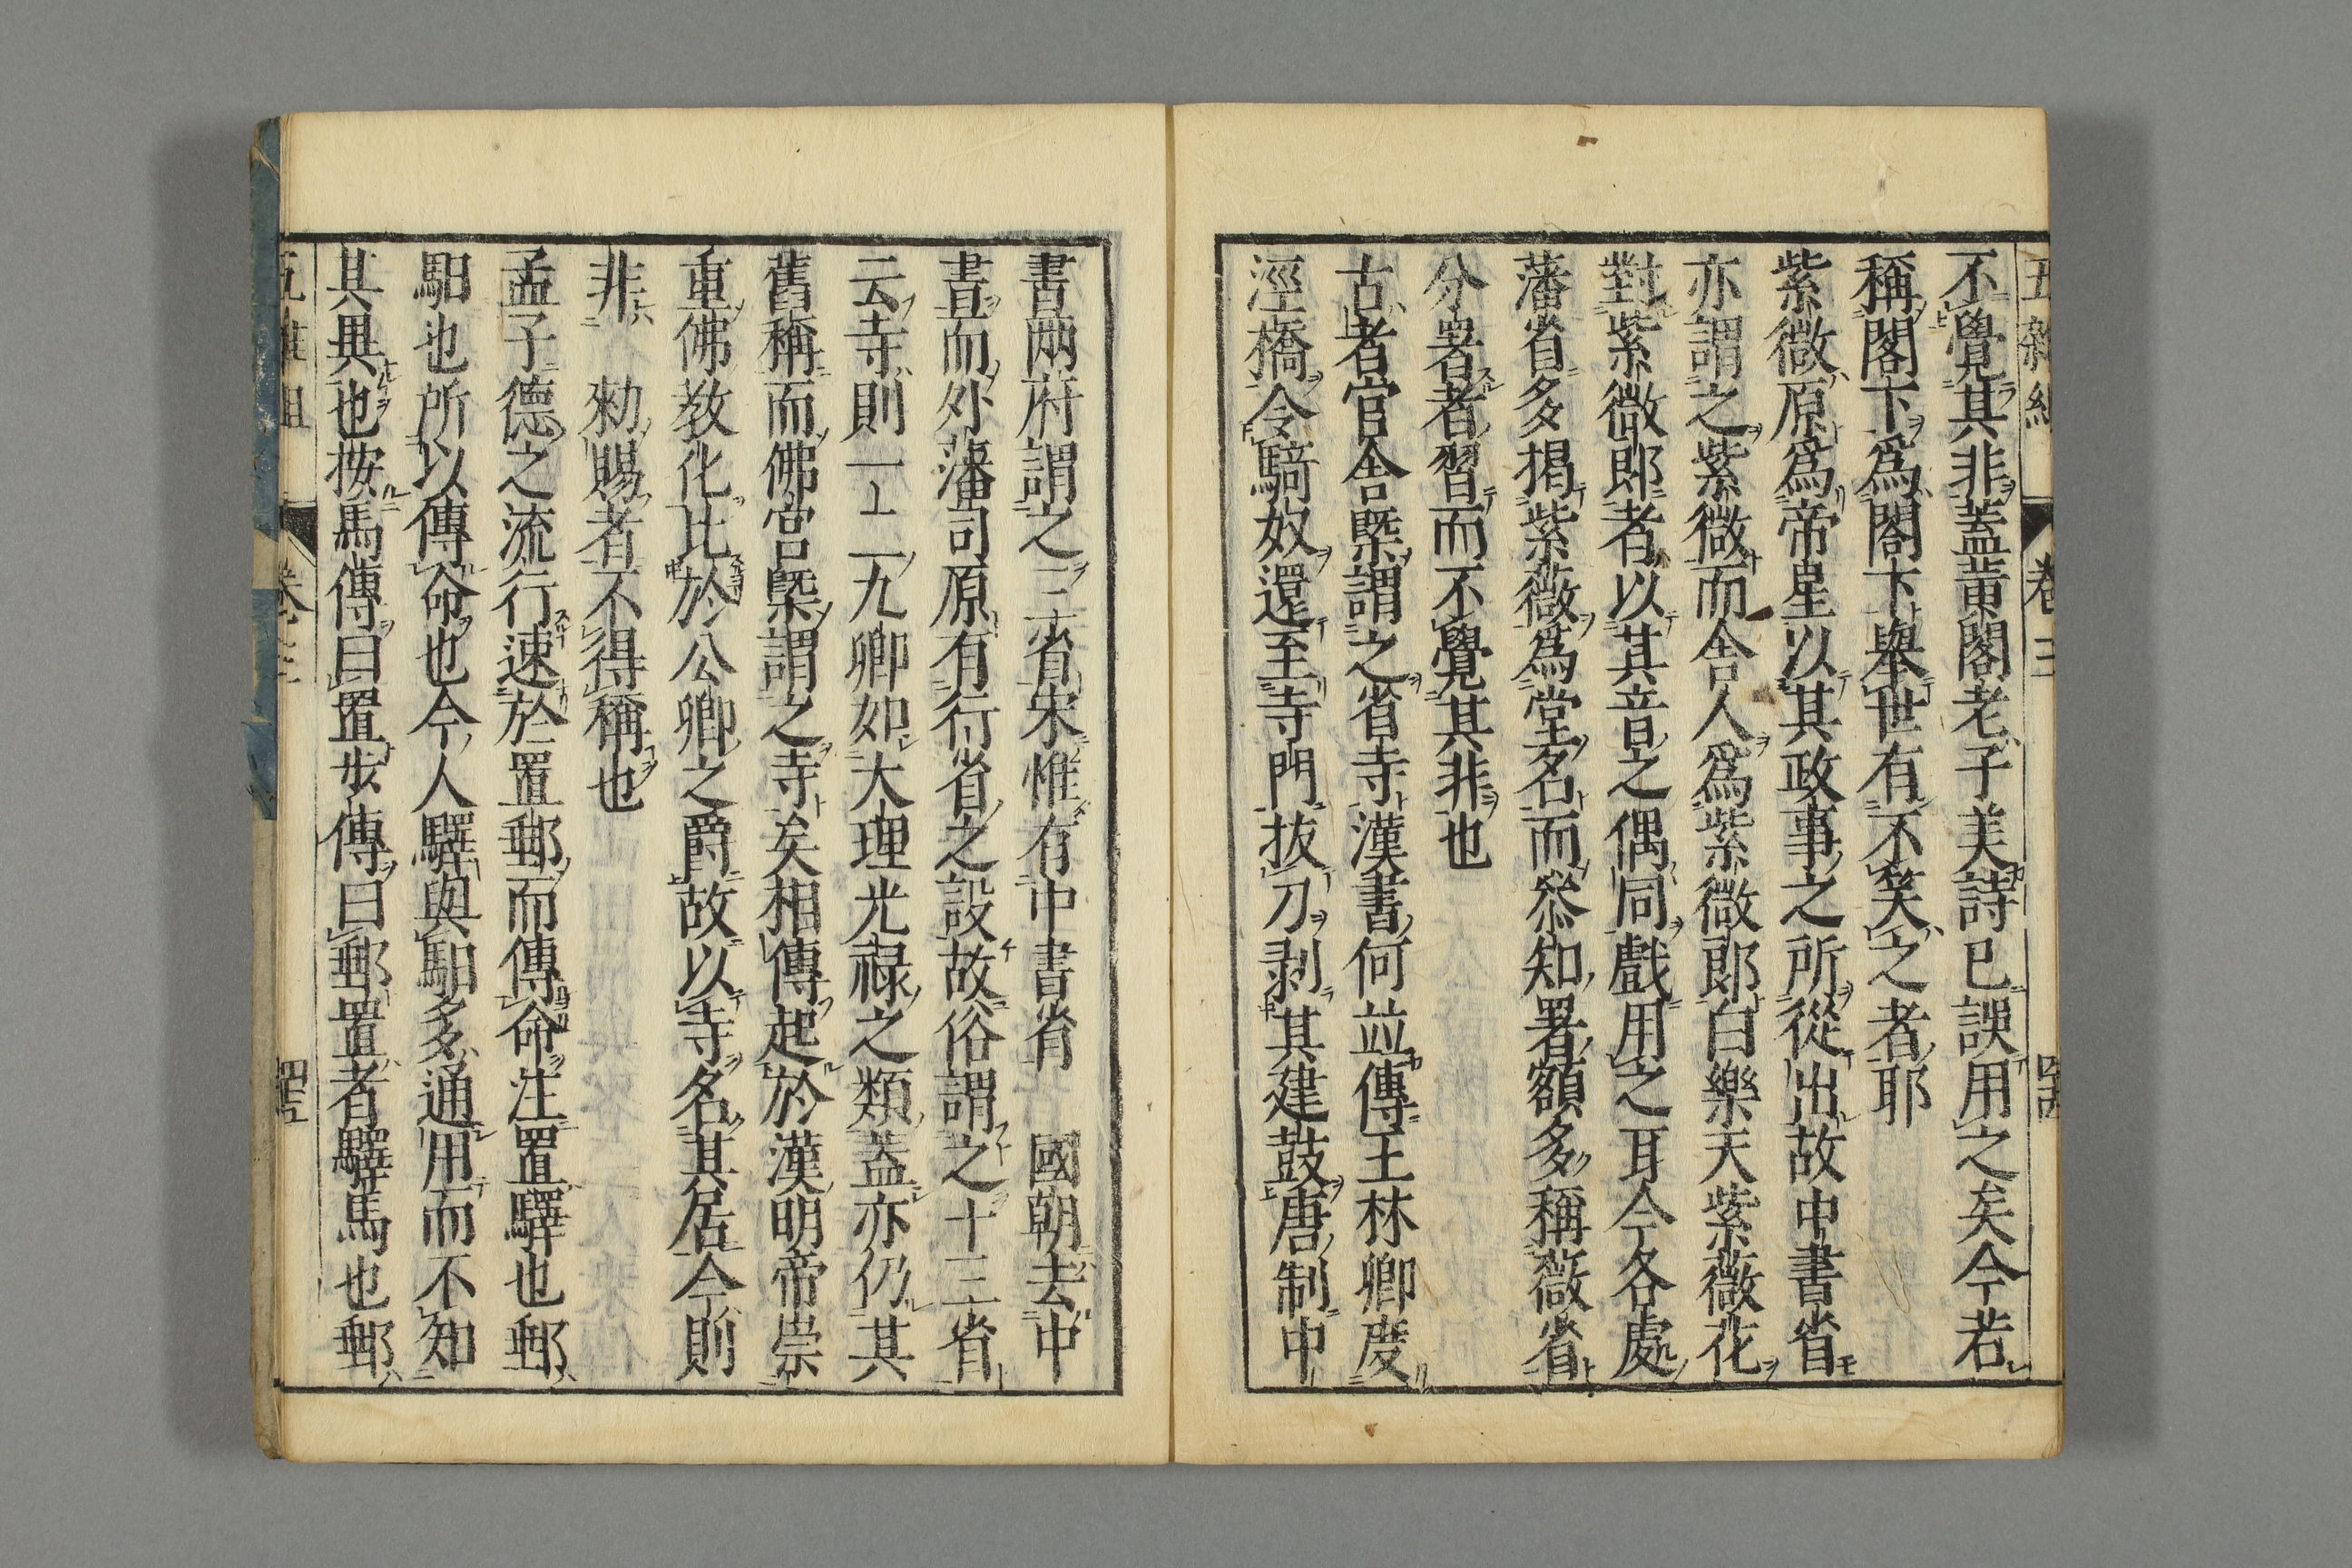 五雜組 卷三
不覺其非蓋黃閣老子美詩已誤用之矣今若
稱閣下爲閤下舉世有不笑之者耶
紫微原爲帝星以其政事之所從出故中書省
亦謂之紫微而舍人爲紫微郎白樂天紫薇花
對紫微郎者以其音之偶同戲用之耳今各處
藩省多揭紫薇爲堂名而叅知署額多稱薇省
分署者習而不覺其非也
古者官舍槩謂之省寺漢書何並傳王林卿度
涇橋令騎奴還至寺門拔刀剥其建鼓唐制中
書兩府謂之三省宋惟有中書省 國朝去中
書而外藩司原有行省之設故俗謂之十三省
云寺則一上一九卿如大理光禄之類蓋亦仍其
舊稱而佛宮槩謂之寺矣相傳起於漢明帝崇
重佛教化比於公卿之爵故以寺名其居今則
非 勑賜者不得稱也
孟子德之流行速於置郵而傳命注置驛也郵
馹也所以傳命也今人驛與馹多通用而不知
其異也按馬傳曰置步傳曰郵置者驛馬也郵
卷之三